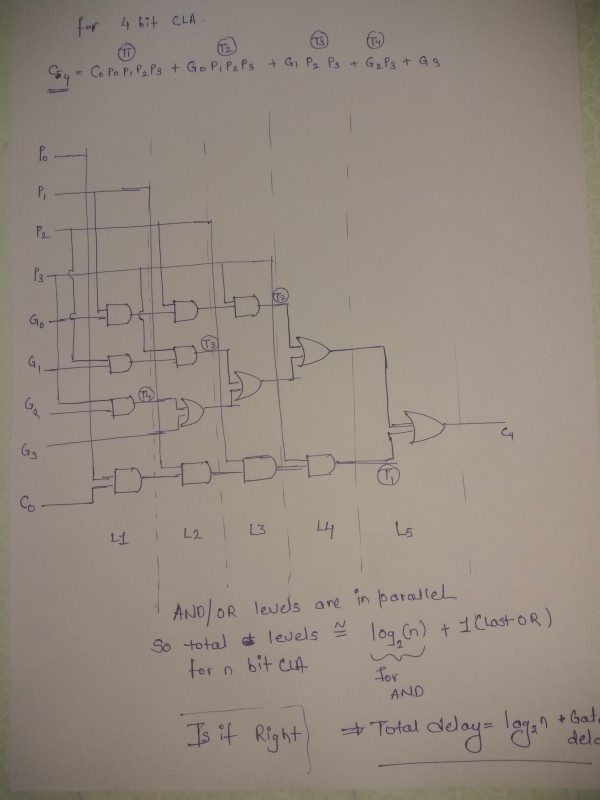 for 4 bit CLA.
T1 T2 T3 T4
C4 = C0 P0 P1 P2 P3 + G0 P1 P2 P3 + G1 P2 P3 + G2 P3 + G3
P0
P1
P2
P3
G0
T2
G1
T3
G2
T4
G3
C4
C0
T1
L1 L2 L3 L4 L5
AND/OR levels are in parallel
So total levels ≅ log2(n) + 1 (Last OR)
for n bit CLA
for
AND
Is it Right
⇒ Total delay = log2n * Gate
delay